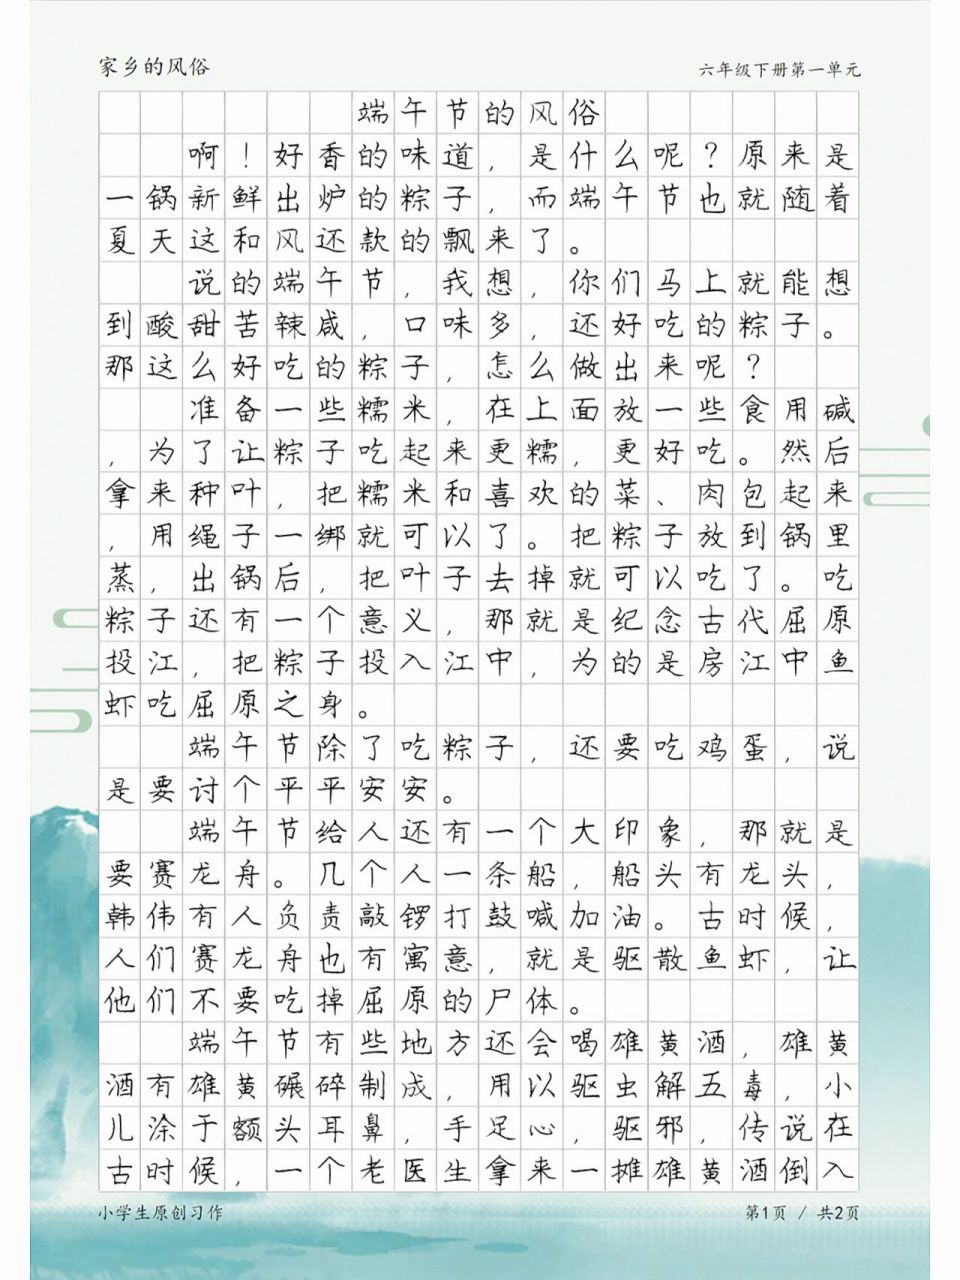 家乡的风俗
六年级下册第一单元
端午节的风俗
啊！好香的味道，是什么呢？原来是
一锅新鲜出炉的粽子，而端午节也就随着
夏天这和风还款的飘来了。
说的端午节，我想，你们马上就能想
到酸甜苦辣咸，口味多，还好吃的粽子。
那这么好吃的粽子，怎么做出来呢？
准备一些糯米，在上面放一些食用碱
，为了让粽子吃起来更糯，更好吃。然后
拿来种叶，把糯米和喜欢的菜、肉包起来
，用绳子一绑就可以了。把粽子放到锅里
蒸，出锅后，把叶子去掉就可以吃了。吃
粽子还有一个意义，那就是纪念古代屈原
投江，把粽子投入江中，为的是房江中鱼
虾吃屈原之身。
端午节除了吃粽子，还要吃鸡蛋，说
是要讨个平平安安。
端午节给人还有一个大印象，那就是
要赛龙舟。几个人一条船，船头有龙头，
韩伟有人负责敲锣打鼓喊加油。古时候，
人们赛龙舟也有寓意，就是驱散鱼虾，让
他们不要吃掉屈原的尸体。
端午节有些地方还会喝雄黄酒，雄黄
酒有雄黄碾碎制成，用以驱虫解五毒，小
儿涂于额头耳鼻，手足心，驱邪，传说在
古时候，一个老医生拿来一摊雄黄酒倒入
小学生原创习作
第1页 / 共2页